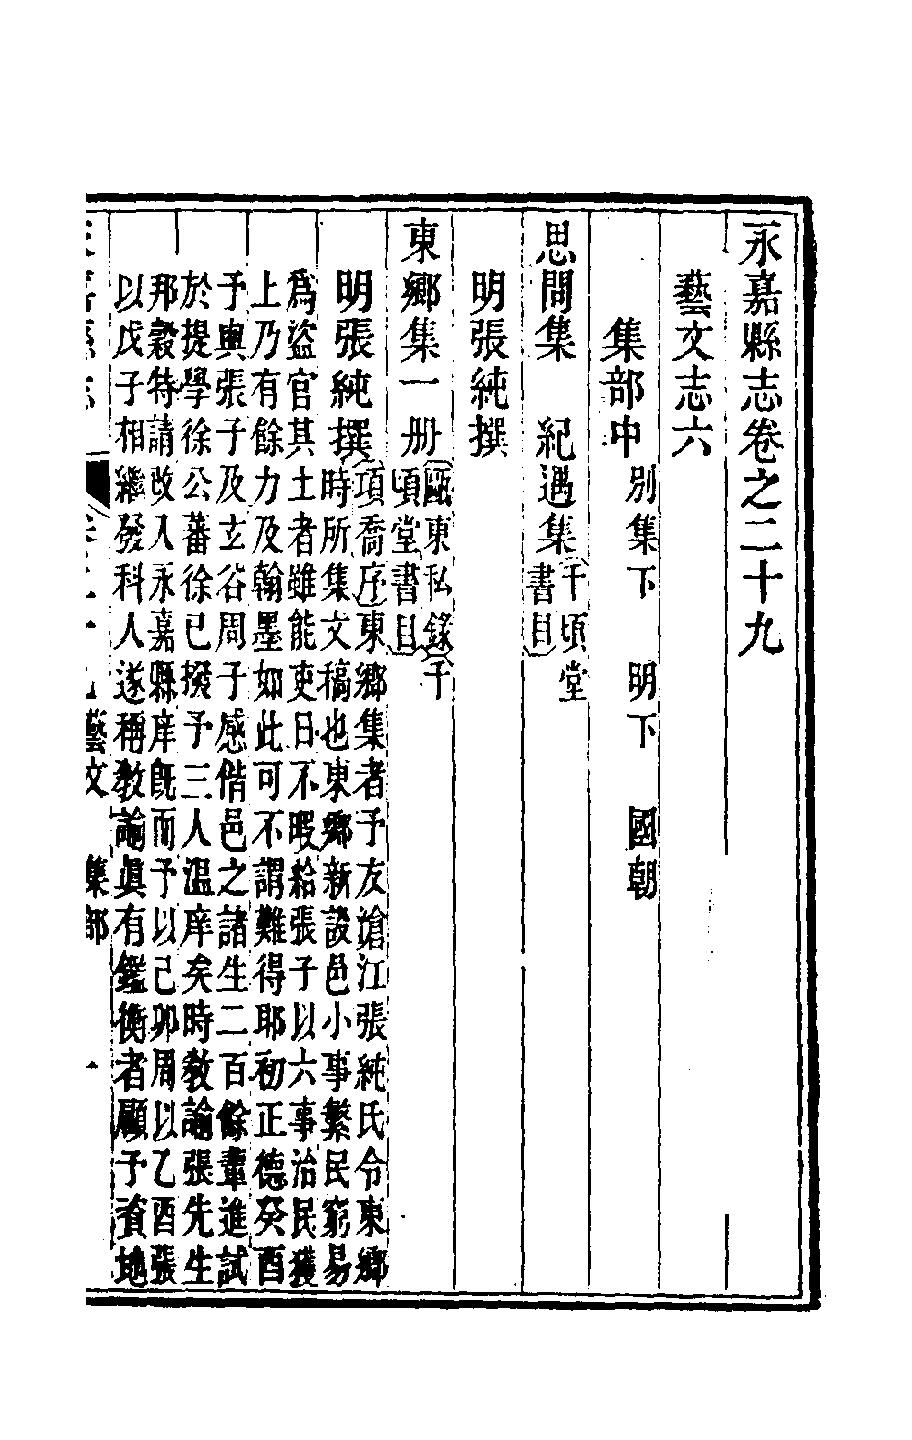 永嘉縣志卷之二十九
藝文志六
集部中 別集下 明下 國朝
思問集 紀遇集 千頃堂書目
明張純撰
東鄉集一册 甌東私錄 千頃堂書目
明張純撰 項喬序東鄉集者予友滄江張純氏令東鄉
時所集文稿也東鄉新設邑小事繁民窮易
爲盜官其土者雖能吏日不暇給張子以六事治民獲
上乃有餘力及翰墨如此可不謂難得耶初正德癸酉
予與張子及玄谷周子感偕邑之諸生二百餘輩進試
於提學徐公蕃徐已撥予三人溫庠矣時敎諭張先生
邦穀特請改入永嘉縣庠旣而予以己卯周以乙酉張
以戊子相繼發科人遂稱敎諭眞有鑑衡者顧予資地
藝文 集部 一